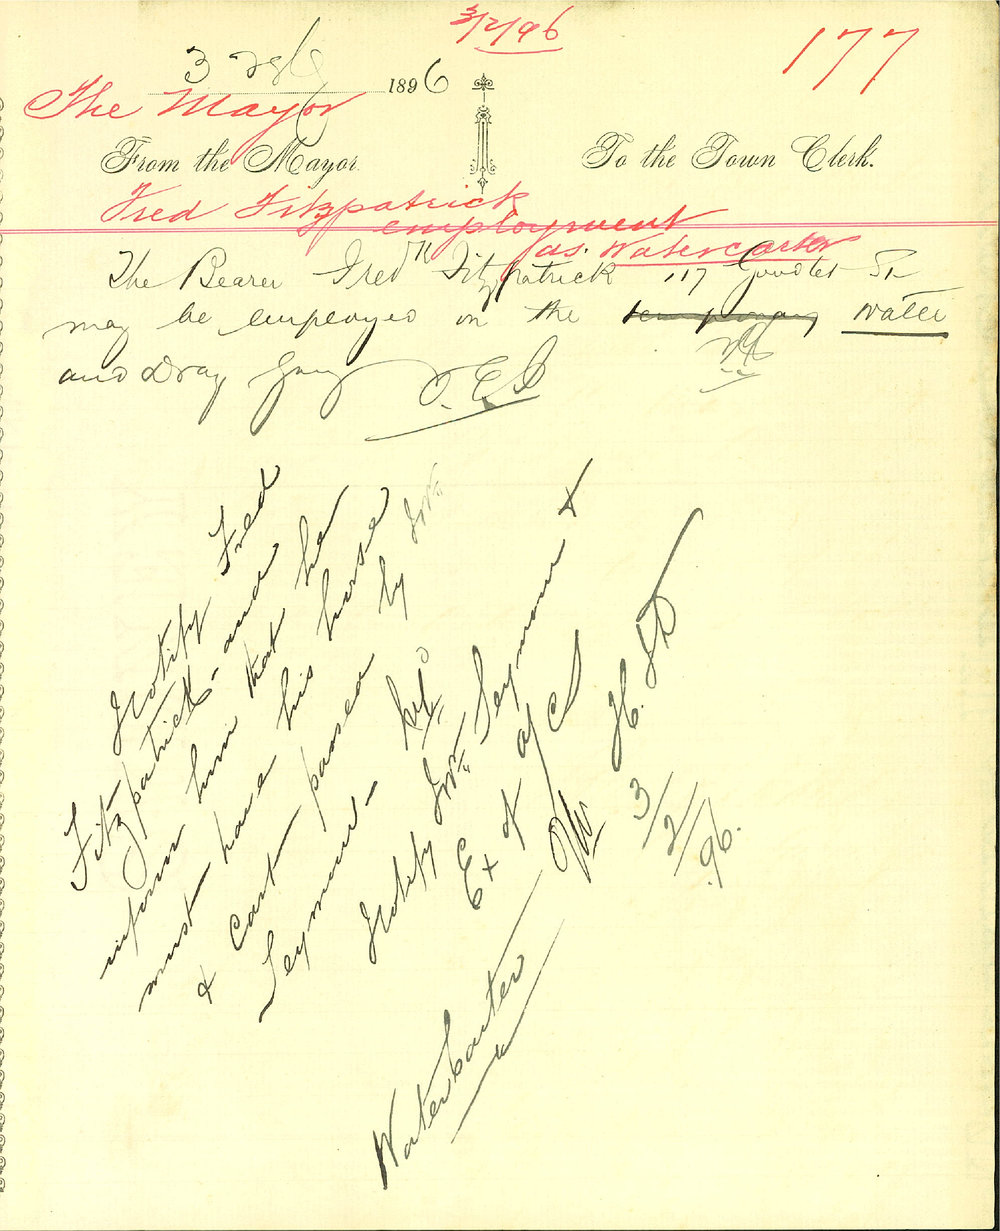 3/2/96
177
3 Feby 1896
The Mayor
From the Mayor. To the Town Clerk.
Fred Fitzpatrick
employment
as Watercarter
The Bearer Fred Fitzpatrick 117 St
may be employed on the temporary water
and Dray Gang
Notify Fred
Fitzpatrick and
inform him that he
must have his horse
& Cart passed by Mr
Seymour
Notify Mr Seymour &
Ex of of C
H.
3/2/96.
Water Carter